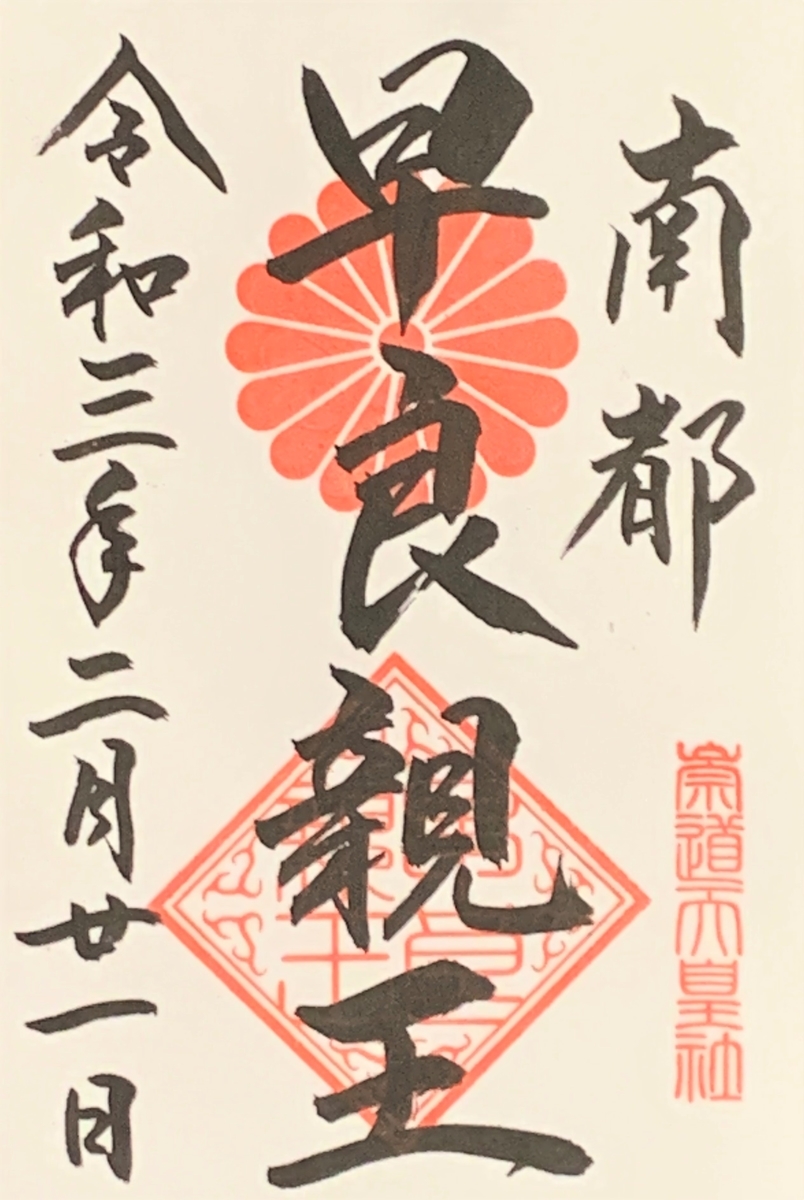 南都
崇道天皇社
早良親王
令和三年二月廿一日